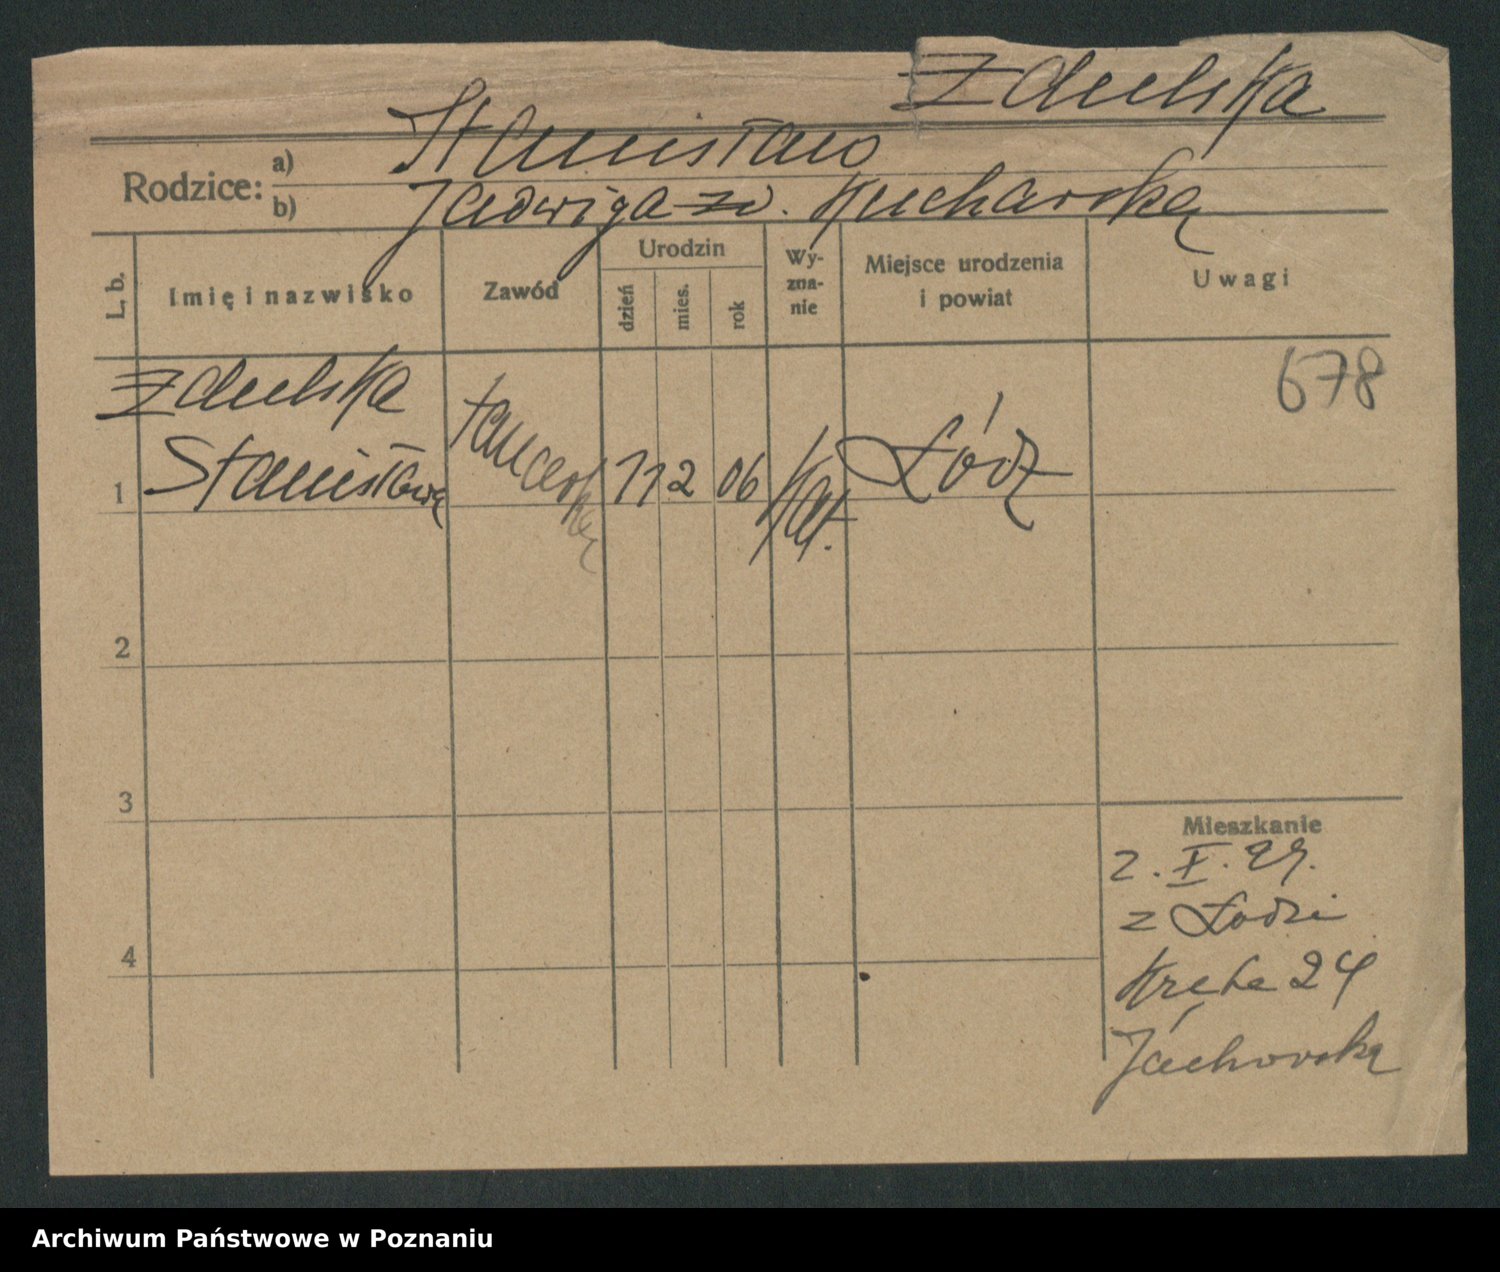 Zdulska
Rodzice: a) Stanisław
b) Jadwiga zd. Kucharska
L. b.
Imię i nazwisko
Zawód
Urodzin
dzień
mies.
rok
Wy-
zna-
nie
Miejsce urodzenia
i powiat
Uwagi
678
Zdulska
1 Stanisława tancerka 11 2 06 kat. Łódź
2
3
4
Mieszkanie
2. X. 29.
z Łodzi
24
Archiwum Państwowe w Poznaniu